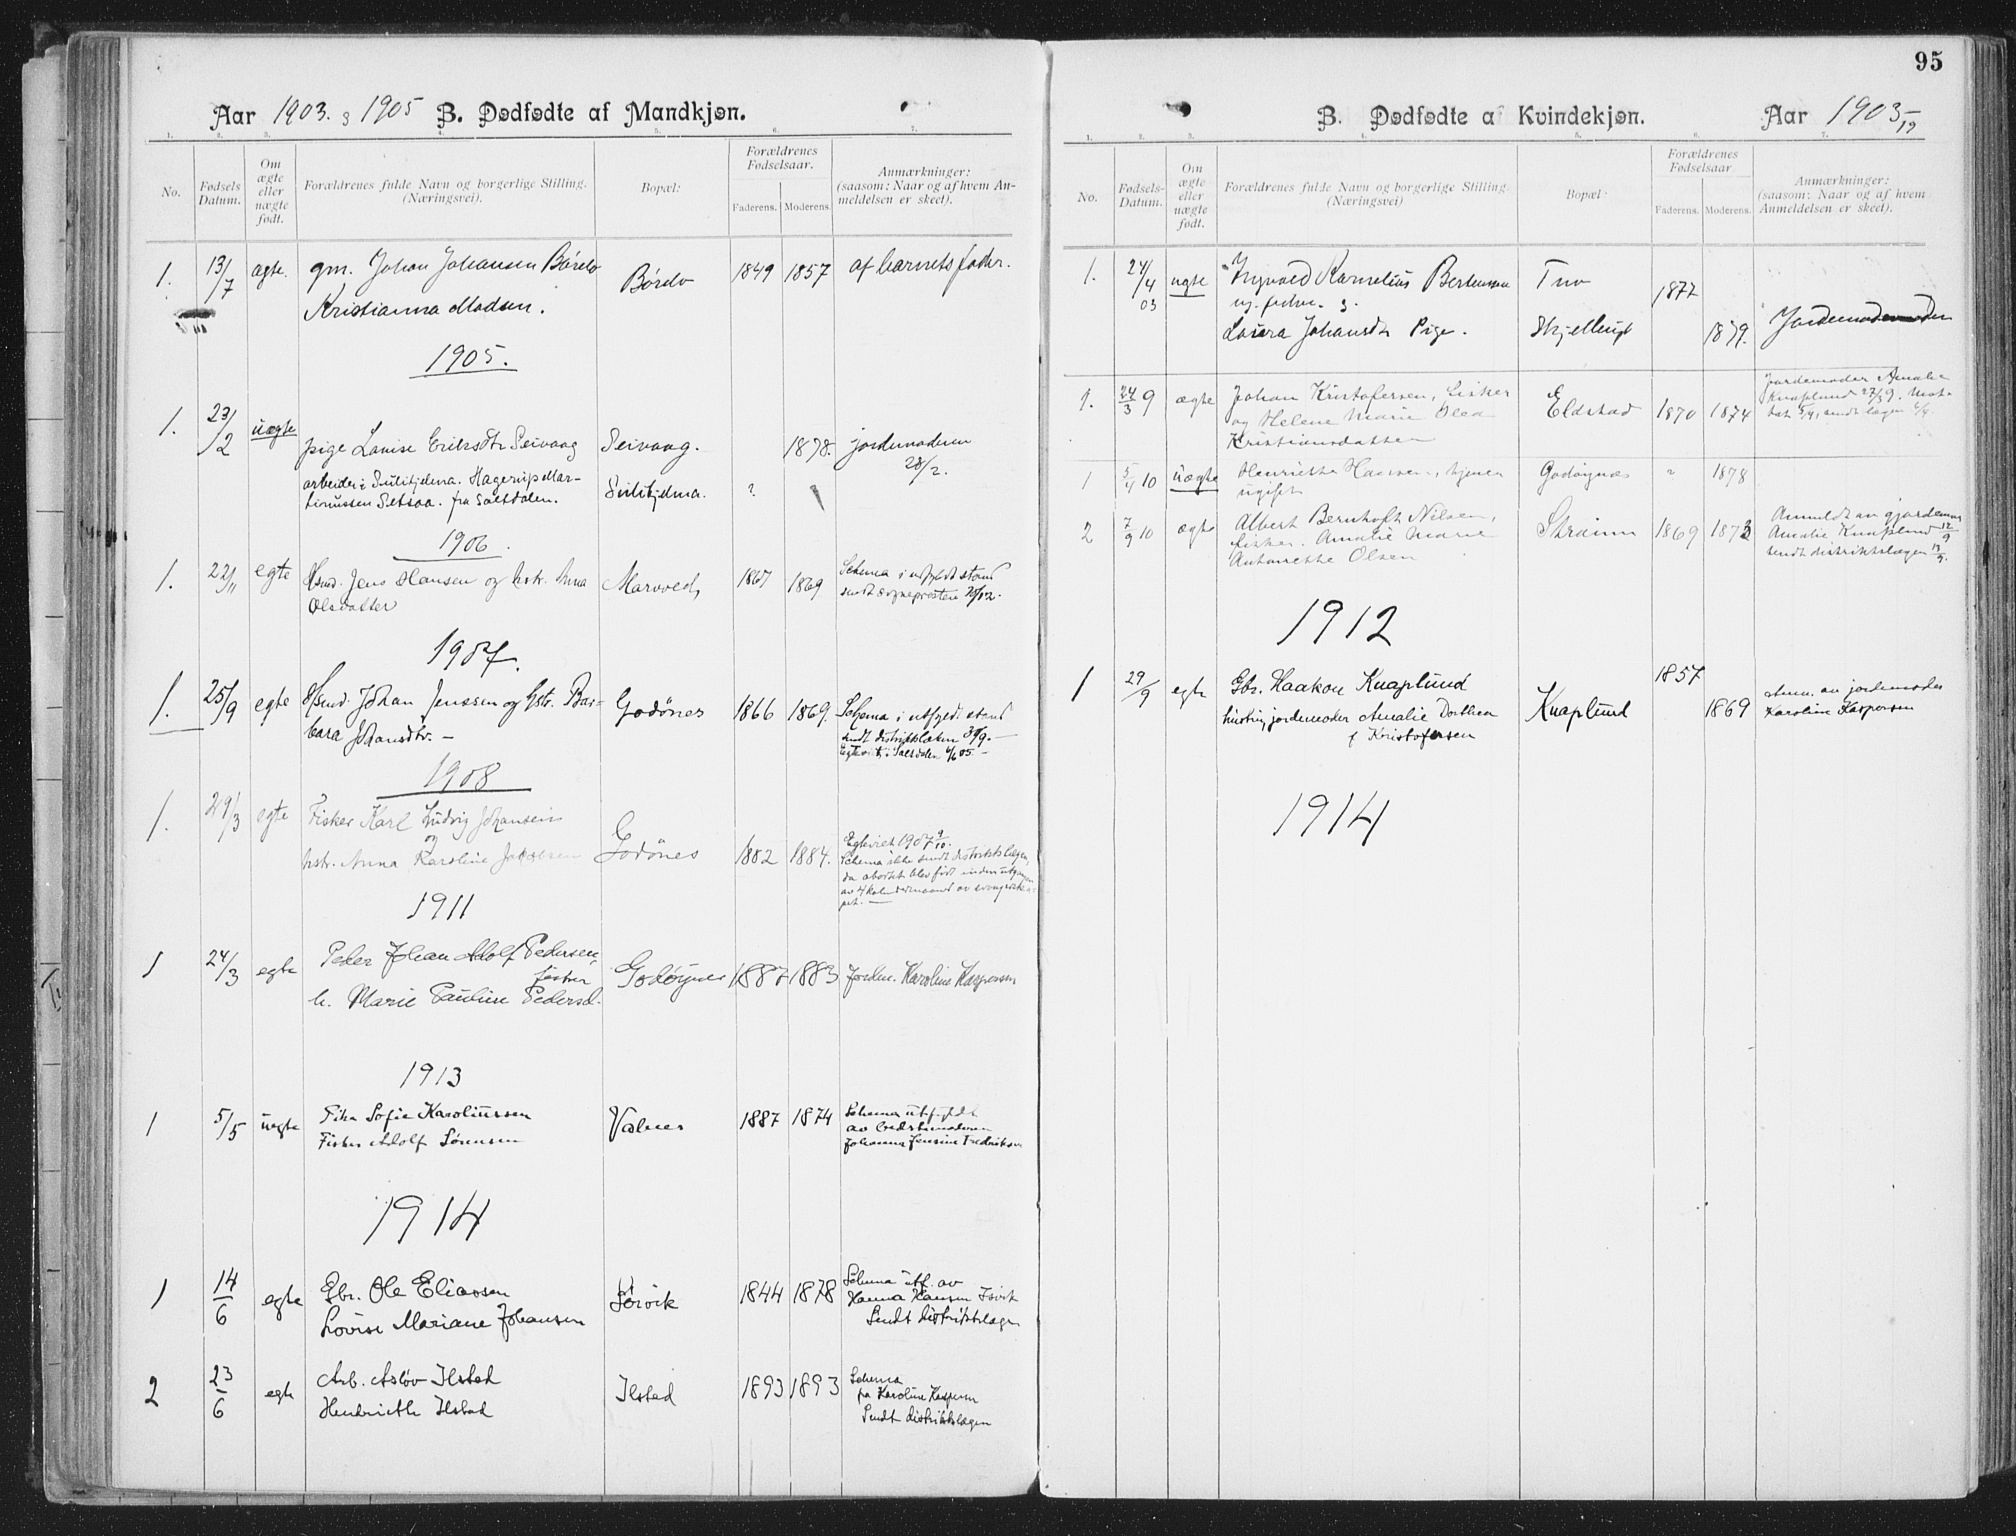 95
Aar 1903. & 1905 B. Dødfødte af Mandkjøn.
1. 2. 3. 4. 5. 6. 7.
No.
Fødsels Datum.
Om ægte eller uægte født.
Forældrenes fulde Navn og borgerlige Stilling.
(Næringsvei).
Bopæl:
Forældrenes Fødselsaar.
Faderens. Moderens.
Anmærkninger:
(saasom: Naar og af hvem An-
meldelsen er skeet).
1. 13/7 ægte. gm. Johan Johansen 1849 1857 af barnets fader.
Kristianna Madsen.
1905.
1. 23/2 uægte
pige Lovise Eriksdtr Seivaag Seivaag. 1878. jordemoderen
28/2.
arbeider i Sulitjelma. Hagerup Mar-
tinussen Setsaa. fra Saltdalen. Sulitjelma. ?
1906.
1. 22/11 egte Gsmd. Jens Hansen og hstr. Anna Marvold, 1867 1869 Schema i utfyldt stand
Olsdatter sendt sogneprosten
1907.
1. 25/9 egte Gsmd. Johan Jenssen og hstr. Bar- Godönes 1866 1869. Schema i utfyldt stand
bara Johansdtr. — sendt distriktslæken 30/9. —
Egteviet i Saltdalen 4/6 05. —
1908
1. 29/3 egte Fisker Karl Ludvig Johansen
og
hstr. Anna Karoline Jakobsen Godönes 1882 1884. Egteviet 1907
Schema ikke sendt distriktslægen,
da abortet blev født inden utgangen
av 4 kalendermaaned av svangerska-
pet. —
1911
1 24/3 egte Peder Johan Adolf Pedersen, Godøynes 1887 1883 Jordm. Karoline Kaspersen
fisker
h. Marie Pauline Pedersd.
1913
1 5/5 uegte Pike Sofie Karoliussen Valnes 1887 1874 Schema utfyldt
Fisker Adolf Sörensen av
Johanna Jensine Fredriksen
1914
1 14/6 egte Gbr. Ole Eliassen Sörvik 1844 1878 Schema utf. av
Lovise Mariane Johansen Hanna Hansen
Sendt distriktslægen
2 23/6 egte Arb. Asløv Ilstad Ilstad 1893 1893 Schema
Hendriette Ilstad fra Karoline Kaspersen
Sendt distriktslægen
B. Dødfødte a Kvindekjøn. Aar 1903-19
1. 2. 3. 4. 5. 6. 7.
No.
Fødsels-Datum.
Om ægte eller uægte født.
Forældrenes fulde Navn og borgerlige Stilling.
(Næringsvei)
Bopæl:
Forældrenes Fødselsaar
Faderens. Moderens.
Anmærkninger:
(saasom: Naar og af hvem
Anmeldelsen er skeet).
1. 24/4 03 uegte Ingvald Kornelius Bertensen Tuv 1877
Laura Johansdtr Pige. Skjellingt 1879. Jordemoderen
1. 24/3 9 ægte Johan Kristofersen, fisker Eldstad 1870 1874 Jordemoder Amalie
og Helene Marie Olea Knaplund 27/3 9.
Kristiansdatter
1 5/4 10 uægte Henriette Hansen, Godøynes ? 1878
ugift
2 7/9 10 ægte Albert Bernhoft Nilsen, Straum 1869 1873 Anmeldt av gjordemor
fisker. Amalie Marie Amalie Knaplund 12/9
Antonette Olsen sendt distriktslægen 13/9.
1912
1 29/9 egte Gbr. Haakon Knaplund Knaplund 1857 1869 Anm. av jordemoder
hustru jordemoder Amalie Dorthea Karoline Kaspersen
f Kristofersen
1914